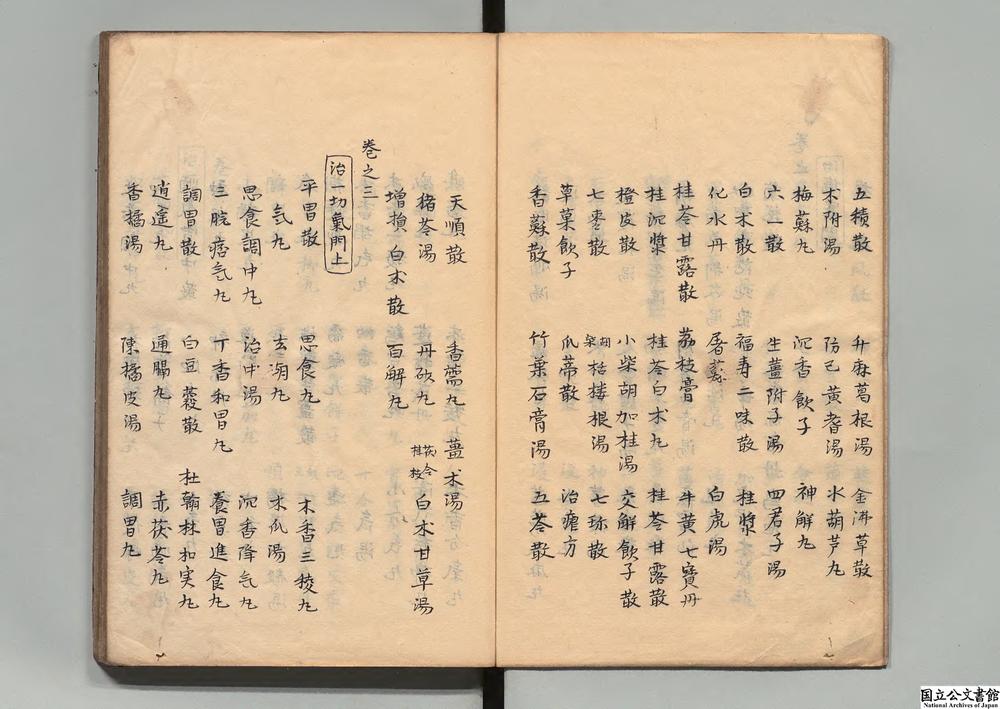 五積散 升麻葛根湯 金沸草散
朮附湯 防已黄耆湯 水葫芦丸
梅蘇丸 沉香飲子 神解丸
六一散 生薑附子湯 四君子湯
白朮散 福寿二味散 桂漿
化水丹 屠蘇 白虎湯
桂苓甘露散 荔枝膏 牛黄七寶丹
桂沉漿 桂苓白朮丸 桂苓甘露散
橙皮散 小柴胡加桂湯 交解飲子散
七枣散 柴胡栝楼根湯 七珎散
草菓飲子 瓜蒂散 治瘧方
香蘇散 竹葉石膏湯 五苓散
天順散 香薷丸 薑朮湯
猪苓湯 丹砂丸 茯令桂枝白朮甘草湯
增損白朮散 百解丸
巻之三
治一切氣門上
平胃散 思食丸 木香三稜丸
氣丸 玄湖丸 木瓜湯
思食調中丸 治中湯 沉香降气丸
三脘痞气丸 丁香和胃丸 養胃進食丸
調胃散 白豆蔲散 杜翰林枳実丸
逍遥丸 通膈丸 赤茯苓丸
香橘湯 陳橘皮湯 調胃丸
国立公文書館
National Archives of Japan